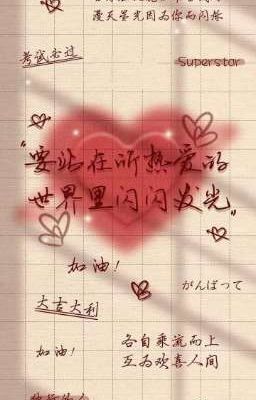 漫天星光因为你而闪烁
考试必过
Superstar
"要站在所热爱的
世界里闪闪发光"
加油！
がんばって
大吉大利
各自乘流而上
加油！
互为欢喜人间